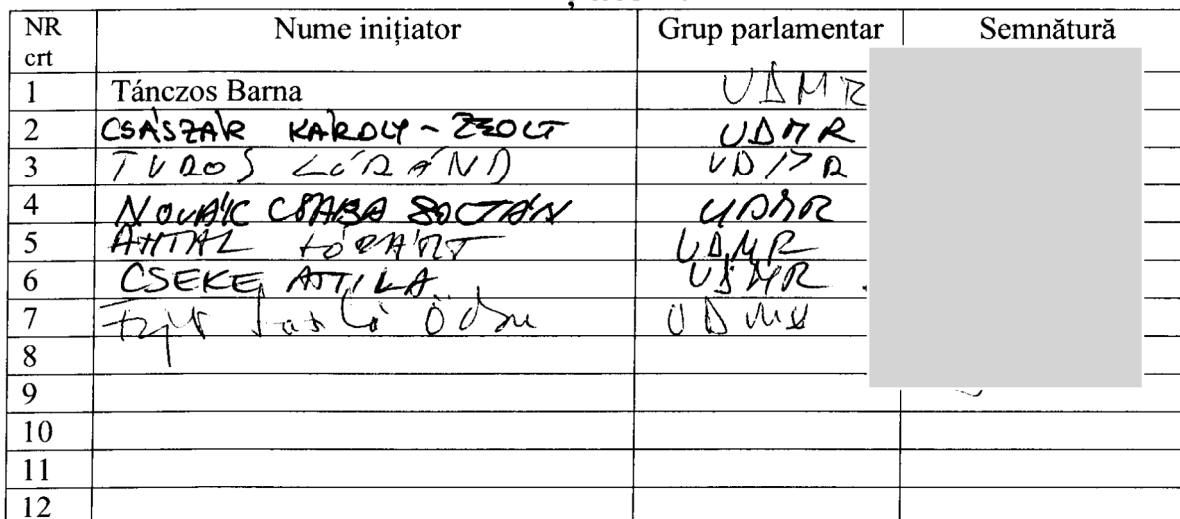 NR crt Nume inițiator Grup parlamentar Semnătură
1 Tánczos Barna UDMR
2 CSÁSZÁR KÁROLY - ZSOLT UDMR
3 TUROS LÓRÁND UDMR
4 NOVÁK CSABA ZOLTÁN UDMR
5 ANTAL LÓRÁNT UDMR
6 CSEKE ATTILA UDMR
7 László Ödön UDMR
8
9
10
11
12